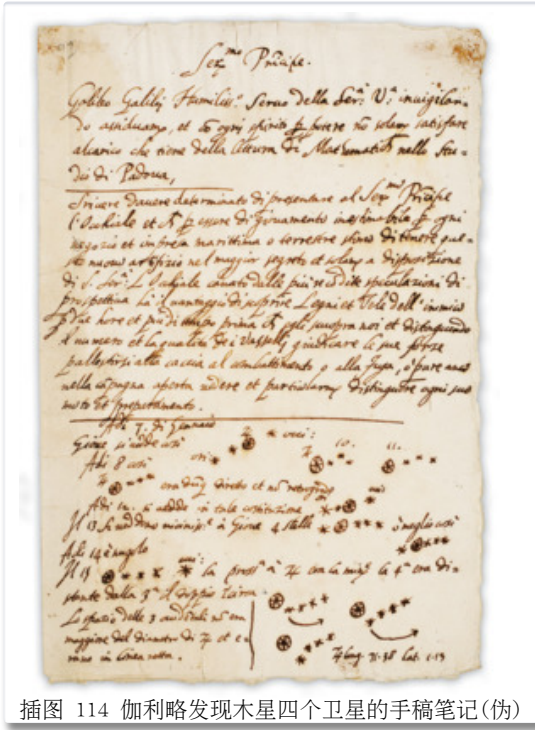 Ser.mo Principe.
Galileo Galilej Humiliss.o Servo della Ser.a V.a invigilan-
do assiduam.te, et cō ogni spirito ꝑ potere nō solam.te satisfare
al carico che tiene della lettura di Mathematich nello Stu-
dio di Padova,
Scrivere d'havere determinato di presentare al Ser.mo Principe
l'Occhiale et ꝑ essere di giovamento inestimabile ꝑ ogni
negozio et impresa marittima o terrestre stimo di tenere que-
sto nuovo artifizio nel maggior segreto et solam.te a disposizione
di S. Ser.a L'Occhiale cavato dalle più recōdite speculazioni di
prospettiva ha il vantaggio di scoprire Legni et Vele dell'inimico
ꝑ due hore et più di prima et distinguendo
il numero et la qualità dei Vasselli giudicare le sue forze
pallestirsi alla caccia al combattimento o alla fuga, o pure anco
nella capagna aperta vedere et particolarm.te distinguere ogni suo
moto et preparamento.
Adi 7. di Gennaio
Giove si vedde così
Adi 8 così 10. 11.
era dūq diretto et nō retrogrado
Adi 12. si vedde in tale costituzione
Il 13 si veddono viciniss.e à Giove 4 stelle ò meglio così
Adi 14 è nugolo
Il 15 la pross.a à ♃ era la min.e la 4.a era di-
stante dalla 3.a il doppio
Lo spazio delle 3 nō era
maggiore del diametro di ♃ et e-
rano in linea retta.
♃ long. 71·38 lat. 1·13
插图 114 伽利略发现木星四个卫星的手稿笔记(伪)